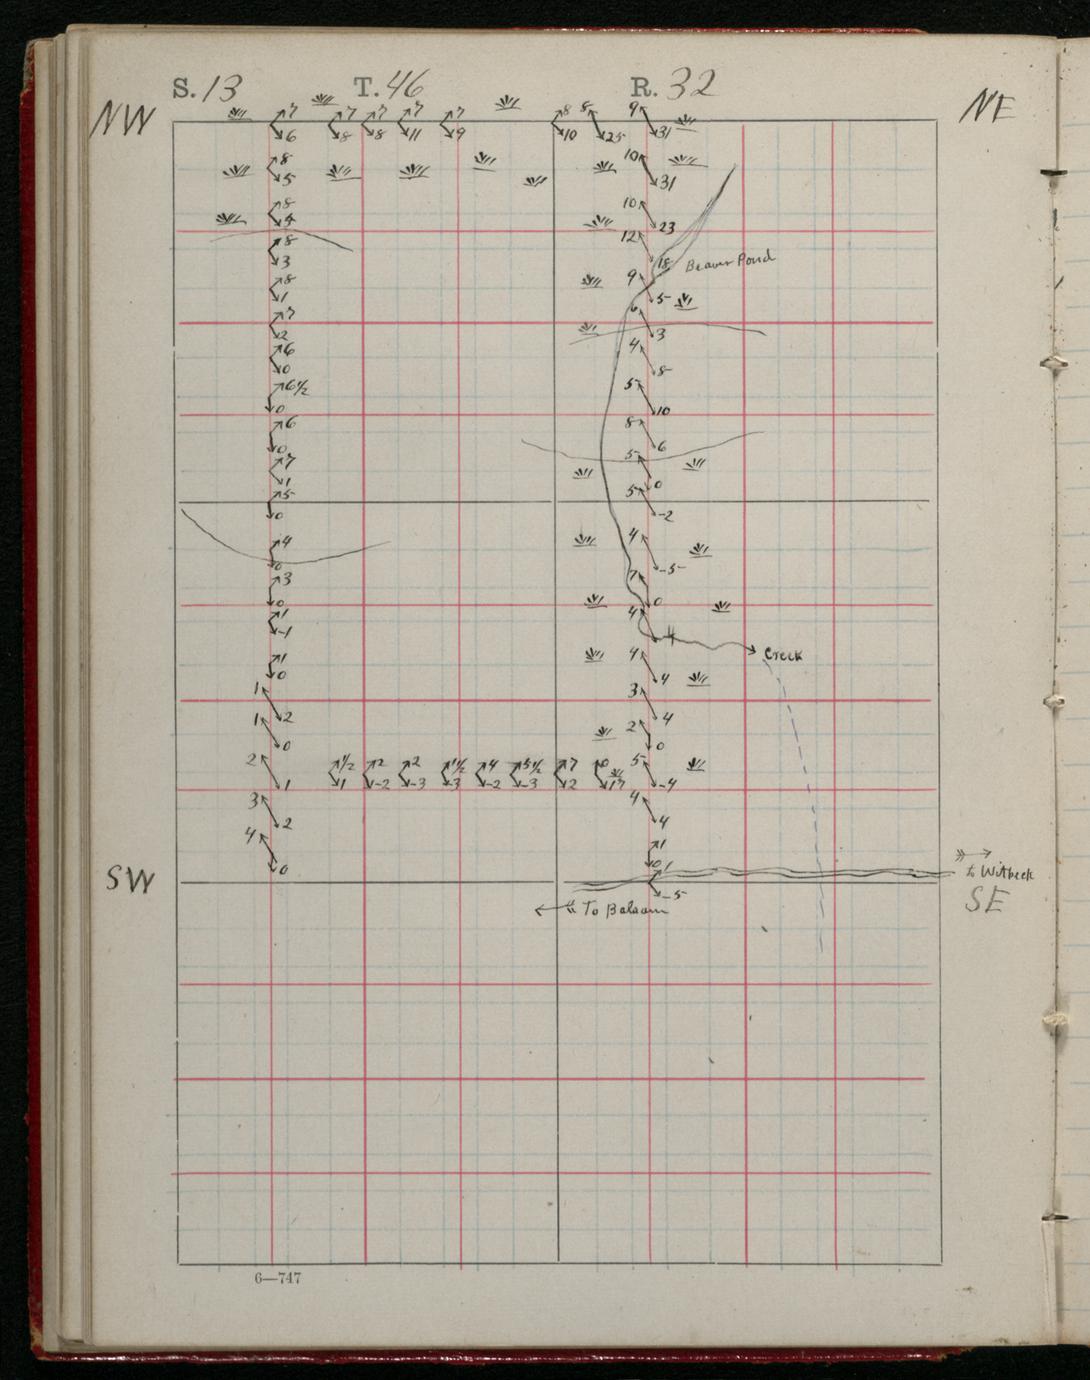 S. 13 T. 46 R. 32
NW NE
7 7 7 7 7 8 8 9
6 8 8 11 9 10 25 31
8 10
5 31
8 10
4 23
8 12
3 18 Beaver Pond
8 9
1 5
7 6
2 3
6 4
0 8
6½ 5
0 10
6 8
0 6
7 5
1 0
5 5
0 -2
4 4
0 -5
3 7
0 0
1 4
-1 4 Creek
1 4
0 4
1 3
2 4
1 2
0 0
2 ½ 2 2 1½ 4 5½ 7 0 5
1 1 -2 -3 -3 -2 -3 2 17 -4
3 4
2 4
4 1
0 0 1
SW to Witbeck
-5 SE
To Balsam
6—747